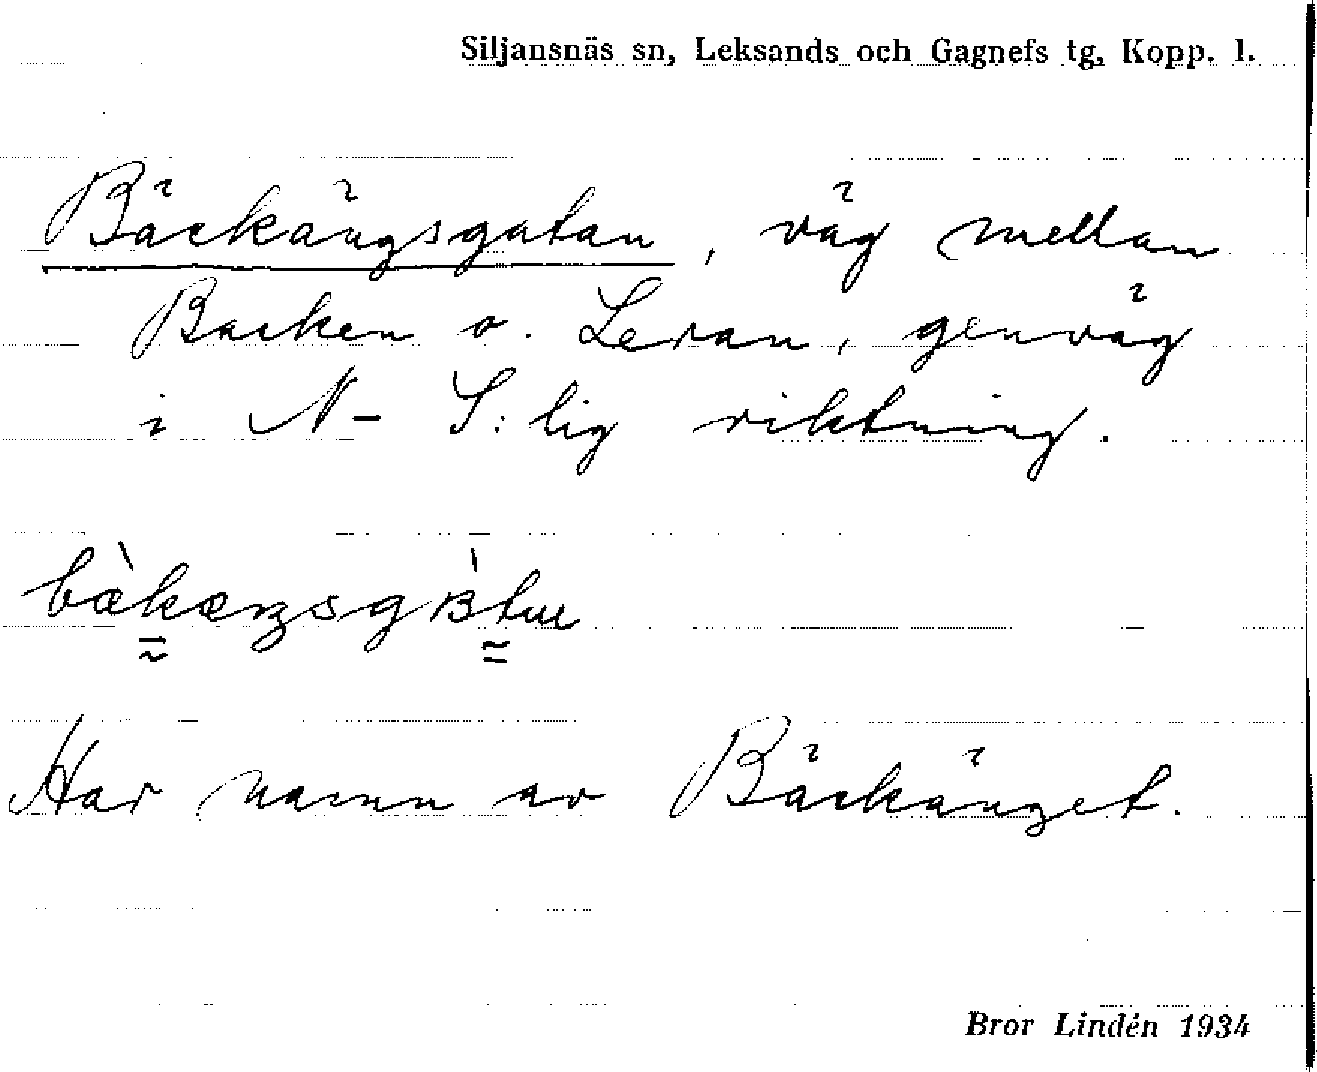 Siljansnäs sn, Leksands och Gagnefs tg, Kopp. l.
Bäckängsgatan, väg mellan
Backen o. Leran, genväg
i N - S:lig riktning.
Har namn av Bäckänget.
Bror Lindén 1934